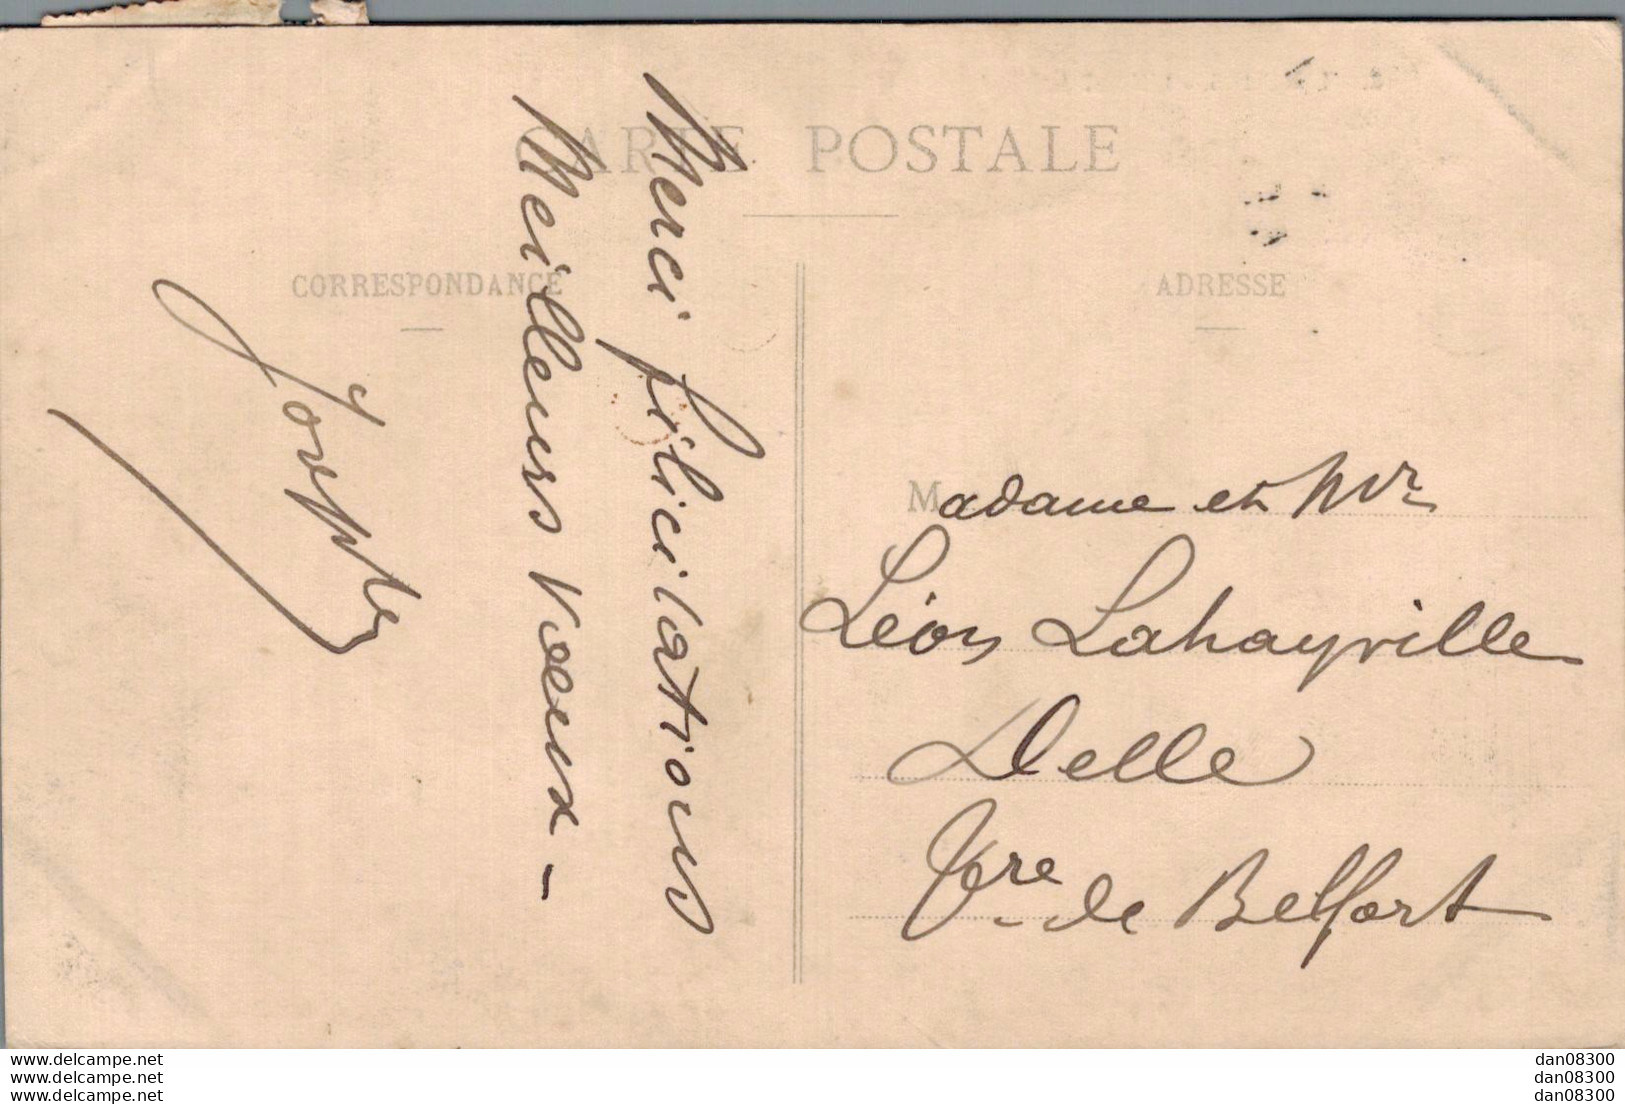 CARTE POSTALE
CORRESPONDANCE
ADRESSE
Merci félicitations
Meilleurs voeux -
Madame et Mr
Léon Lahayville
Delle
Tre de Belfort
www.delcampe.net
www.delcampe.net
www.delcampe.net
dan08300
dan08300
dan08300